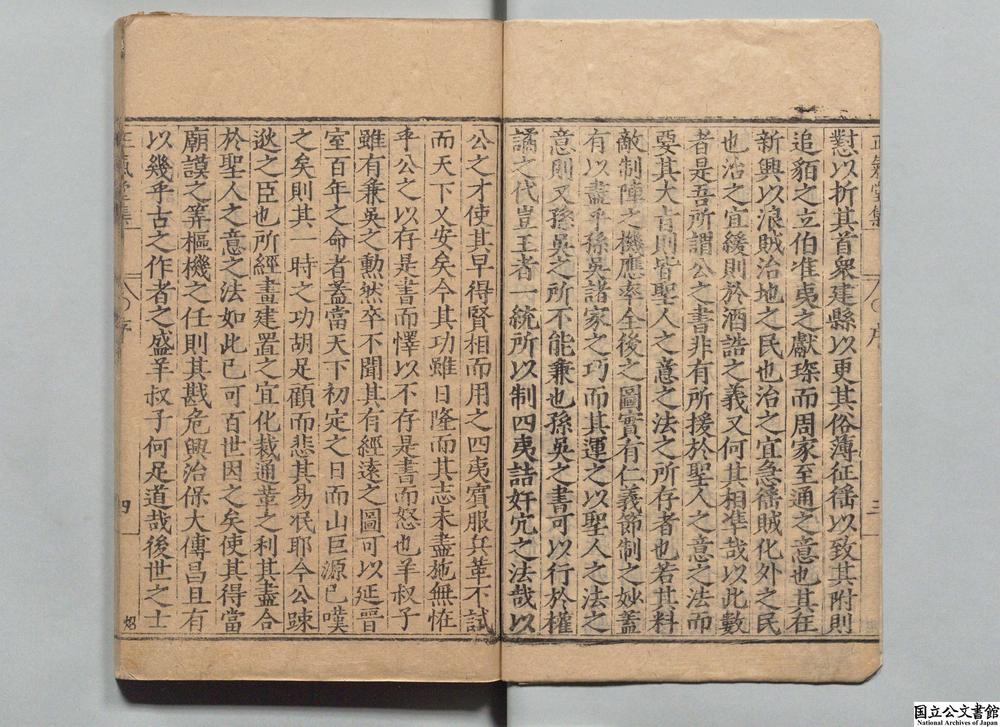 懟以折其首衆建縣以更其俗薄征徭以致其附則
追貊之立伯淮夷之獻琛而周家至通之意也其在
新興以浪賊治地之民也治之宜急徭賊化外之民
也治之宜緩則於酒誥之義又何其相準哉以此數
者是吾所謂公之書非有所援於聖人之意之法而
要其大肯則皆聖人之意之法之所存者也若其料
敵制陣之機應率全後之圖實有仁義節制之妙蓋
有以盡乎孫吳諸家之巧而其運之以聖人之法之
意則又孫吳之所不能兼也孫吳之書可以行於權
譎之代豈王者一統所以制四夷詰奸宄之法哉以
公之才使其早得賢相而用之四夷賓服兵革不試
而天下乂安矣今其功雖日隆而其志未盡施無恠
乎公之以存是書而懌以不存是書而怒也羊叔子
雖有兼吳之勳然卒不聞其有經遠之圖可以延晉
室百年之命者蓋當天下初定之日而山巨源已嘆
之矣則其一時之功胡足顧而悲其易泯耶今公踈
逖之臣也所經畫建置之宜化裁通華之利其盡合
於聖人之意之法如此已可百世因之矣使其得當
廟謨之筭樞機之任則其戡危興治保大傳昌且有
以幾乎古之作者之盛羊叔子何足道哉後世之士
正氣堂集
序
三
正氣堂集
序
四
国立公文書館
National Archives of Japan